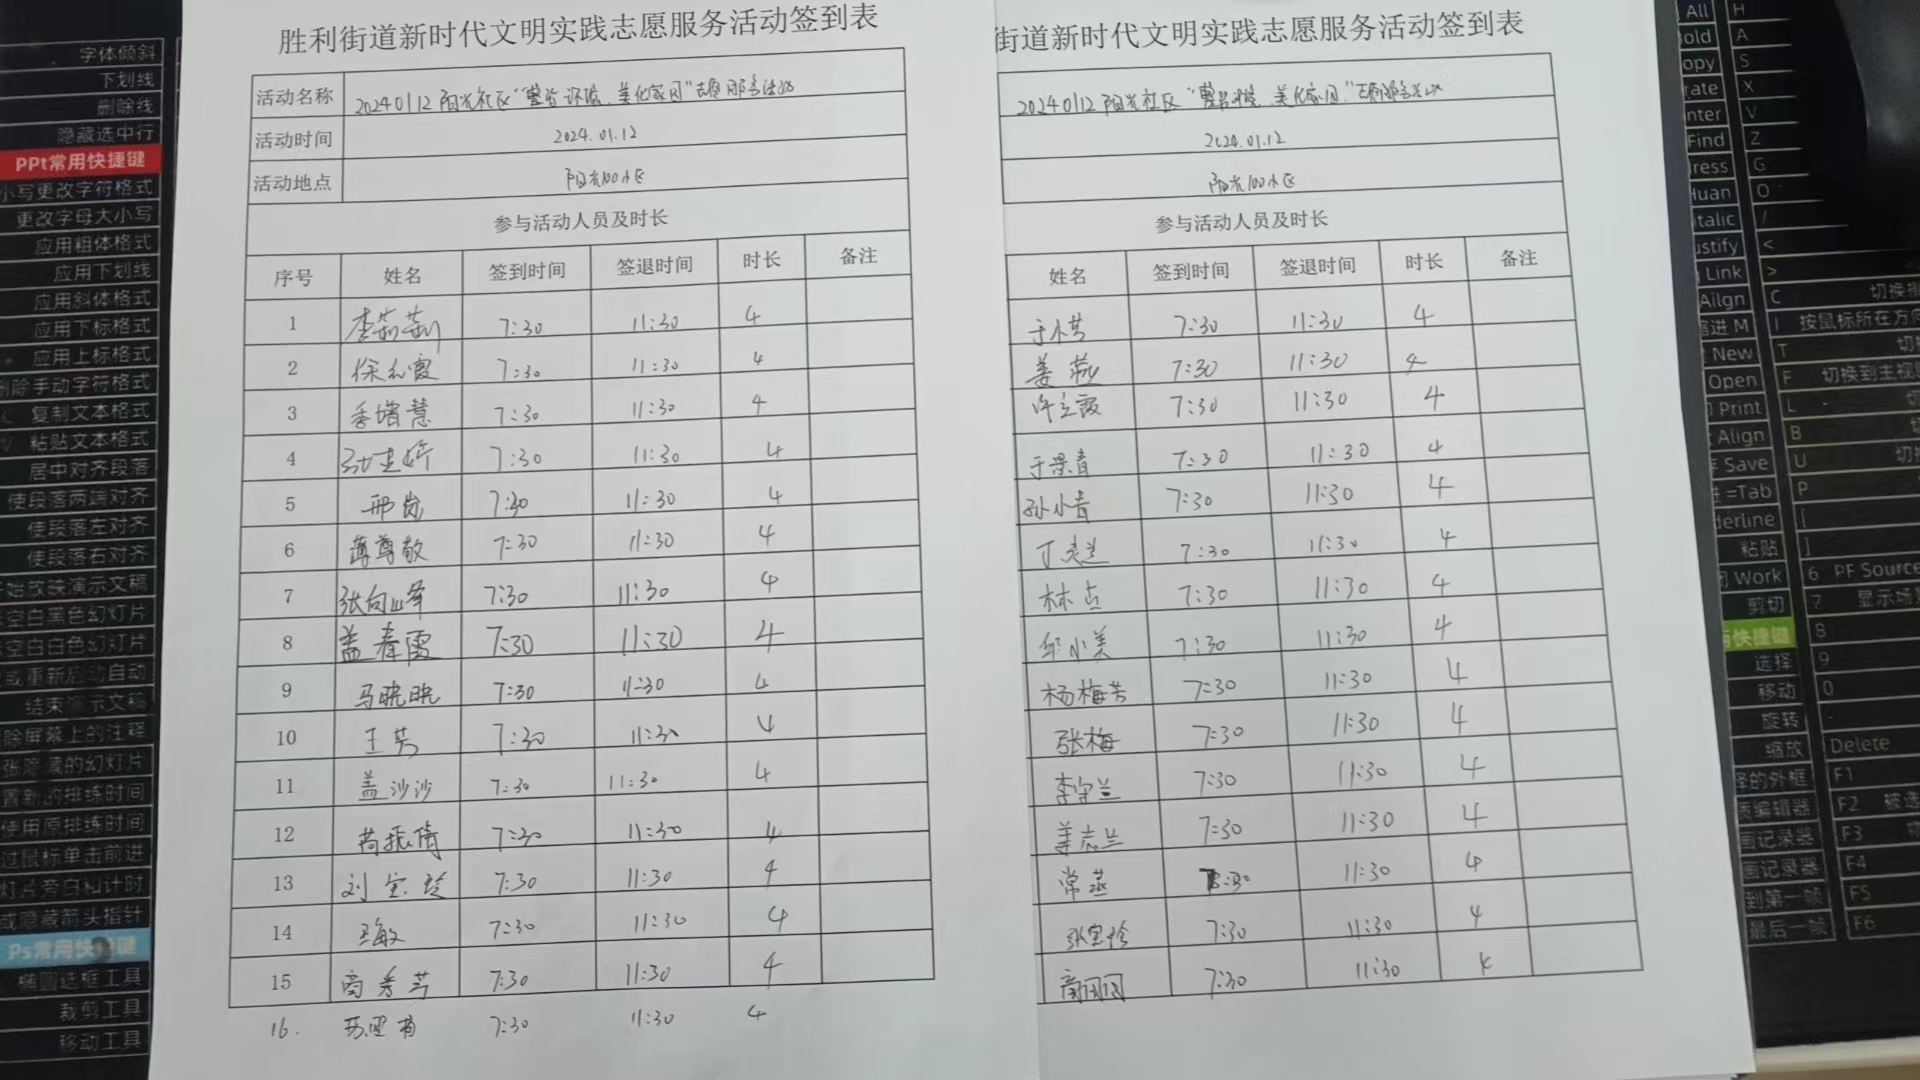 胜利街道新时代文明实践志愿服务活动签到表
活动名称 20240112 阳光社区“整治环境、美化家园”志愿服务活动
活动时间 2024.01.12
活动地点 阳光100小区
参与活动人员及时长
序号 姓名 签到时间 签退时间 时长 备注
1 李莉莉 7:30 11:30 4
2 徐允霞 7:30 11:30 4
3 季增慧 7:30 11:30 4
4 7:30 11:30 4
5 邢岗 7:30 11:30 4
6 蒋尊敬 7:30 11:30 4
7 张向峰 7:30 11:30 4
8 盖春霞 7:30 11:30 4
9 马晓晓 7:30 11:30 4
10 王芳 7:30 11:30 4
11 盖沙沙 7:30 11:30 4
12 苟振倩 7:30 11:30 4
13 刘宝玲 7:30 11:30 4
14 王敏 7:30 11:30 4
15 商秀芹 7:30 11:30 4
16. 7:30 11:30 4
街道新时代文明实践志愿服务活动签到表
20240112 阳光社区“整治环境、美化家园”志愿服务活动
2024.01.12
阳光100小区
参与活动人员及时长
姓名 签到时间 签退时间 时长 备注
于小芳 7:30 11:30 4
姜燕 7:30 11:30 4
许立霞 7:30 11:30 4
于景青 7:30 11:30 4
孙小青 7:30 11:30 4
丁志兰 7:30 11:30 4
林点 7:30 11:30 4
邹小美 7:30 11:30 4
杨梅芳 7:30 11:30 4
张梅 7:30 11:30 4
李守兰 7:30 11:30 4
姜志兰 7:30 11:30 4
常燕 :30 11:30 4
张宝玲 7:30 11:30 4
7:30 11:30 4
字体倾斜
下划线
删除线
隐藏选中行
PPt常用快捷键
小写更改字符格式
更改字母大小写
应用粗体格式
应用下划线
应用斜体格式
应用下标格式
应用上标格式
删除手动字符格式
复制文本格式
粘贴文本格式
居中对齐段落
使段落两端对齐
使段落左对齐
使段落右对齐
始放映演示文稿
空白黑色幻灯片
空白白色幻灯片
或重新启动自动
结束演示文稿
除屏幕上的注释
张隐藏的幻灯片
置新的排练时间
使用原排练时间
过鼠标单击前进
灯片旁白和计时
或隐藏箭头指针
Ps常用快捷键
椭圆选框工具
裁剪工具
移动工具
All H
old A
opy S
rate X
nter V
Find Z
ress G
Huan O
Italic /
ustify <
Link >
Ailgn C 切换
缩进 M I 按鼠标所在方向
New T 切
Open F 切换到主视
Print L 切
Align B
Save U 切
=Tab P
derline [
粘贴 ]
Work 6 PF Source
剪切 7 显示场
快捷键 8
选择 9
移动 0
旋转 .
缩放 Delete
择的外框 F1
质编辑器 F2 被选
画记录器 F3
画记录器 F4
到第一帧 F5
最后一帧 F6